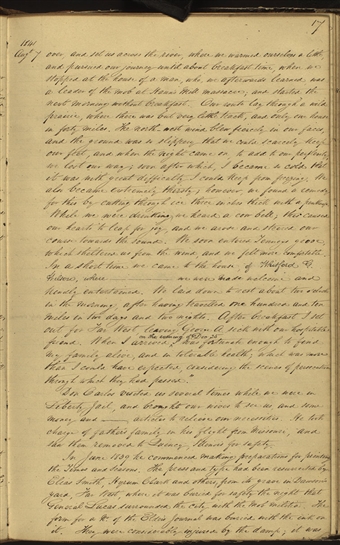 17
1841
Augt. 7 over, and set us across the river, where we warmed ourselves a little
and pursued our journey until about breakfast time, when we
stopped at the house of a man, who, we afterwards learned, was
a leader of the mob at Hauns Mill massacre; and started the
next morning without breakfast. Our route lay through a wild
prairie, where there was but very little track, and only one house
in forty miles. The north west wind blew fiercely in our faces
and the ground was so slippery, that we could scarcely keep
our feet, and when the night came on, to add to our perplexity
we lost our way; soon after which, I became so cold that
it was with great difficulty I could keep from freezing. We
also became extremely thirsty; however we found a remedy
for this by cutting through ice three inches thick with a penknife.
While we were drinking, we heard a cow bell; this caused
our hearts to leap for joy, and we arose and steered our
course towards the sound. We soon entered a grove,
which sheltered us from the wind, and we felt more comfortable.
In a short time we came to the house of
where we were made welcome, and
kindly entertained. We laid down to rest about two o'clock
in the morning, after having traveled one hundred and ten
miles in two days and two nights. After breakfast I set
out for Far West, leaving George A. sick with our hospitable
on the evening of Dec 25
friend. When I arrived, I was fortunate enough to find
my family alive, and in tolerable health; which was more
than I could have expected, considering the scenes of persecution
through which they had passed."
Don Carlos visited us several times while we were in
Liberty Jail, and brought our wives to see us, and some
money and articles to relieve our necessities. He took
charge of father's family in his flight from Missouri, and
saw them removed to Quincy, Illinois for safety.
In June 1839 he commenced making preparations for printing
the Times and Seasons. The press and type had been resurrected by
Elias Smith, Hyrum Clark and others, from its grave in Dawson's
yard, Far West, where it was buried for safety the night that
General Lucas surrounded the city with the mob militia. The
form for a No. of the Elders Journal was buried with the ink on
it. They were considerably injured by the damp; it was